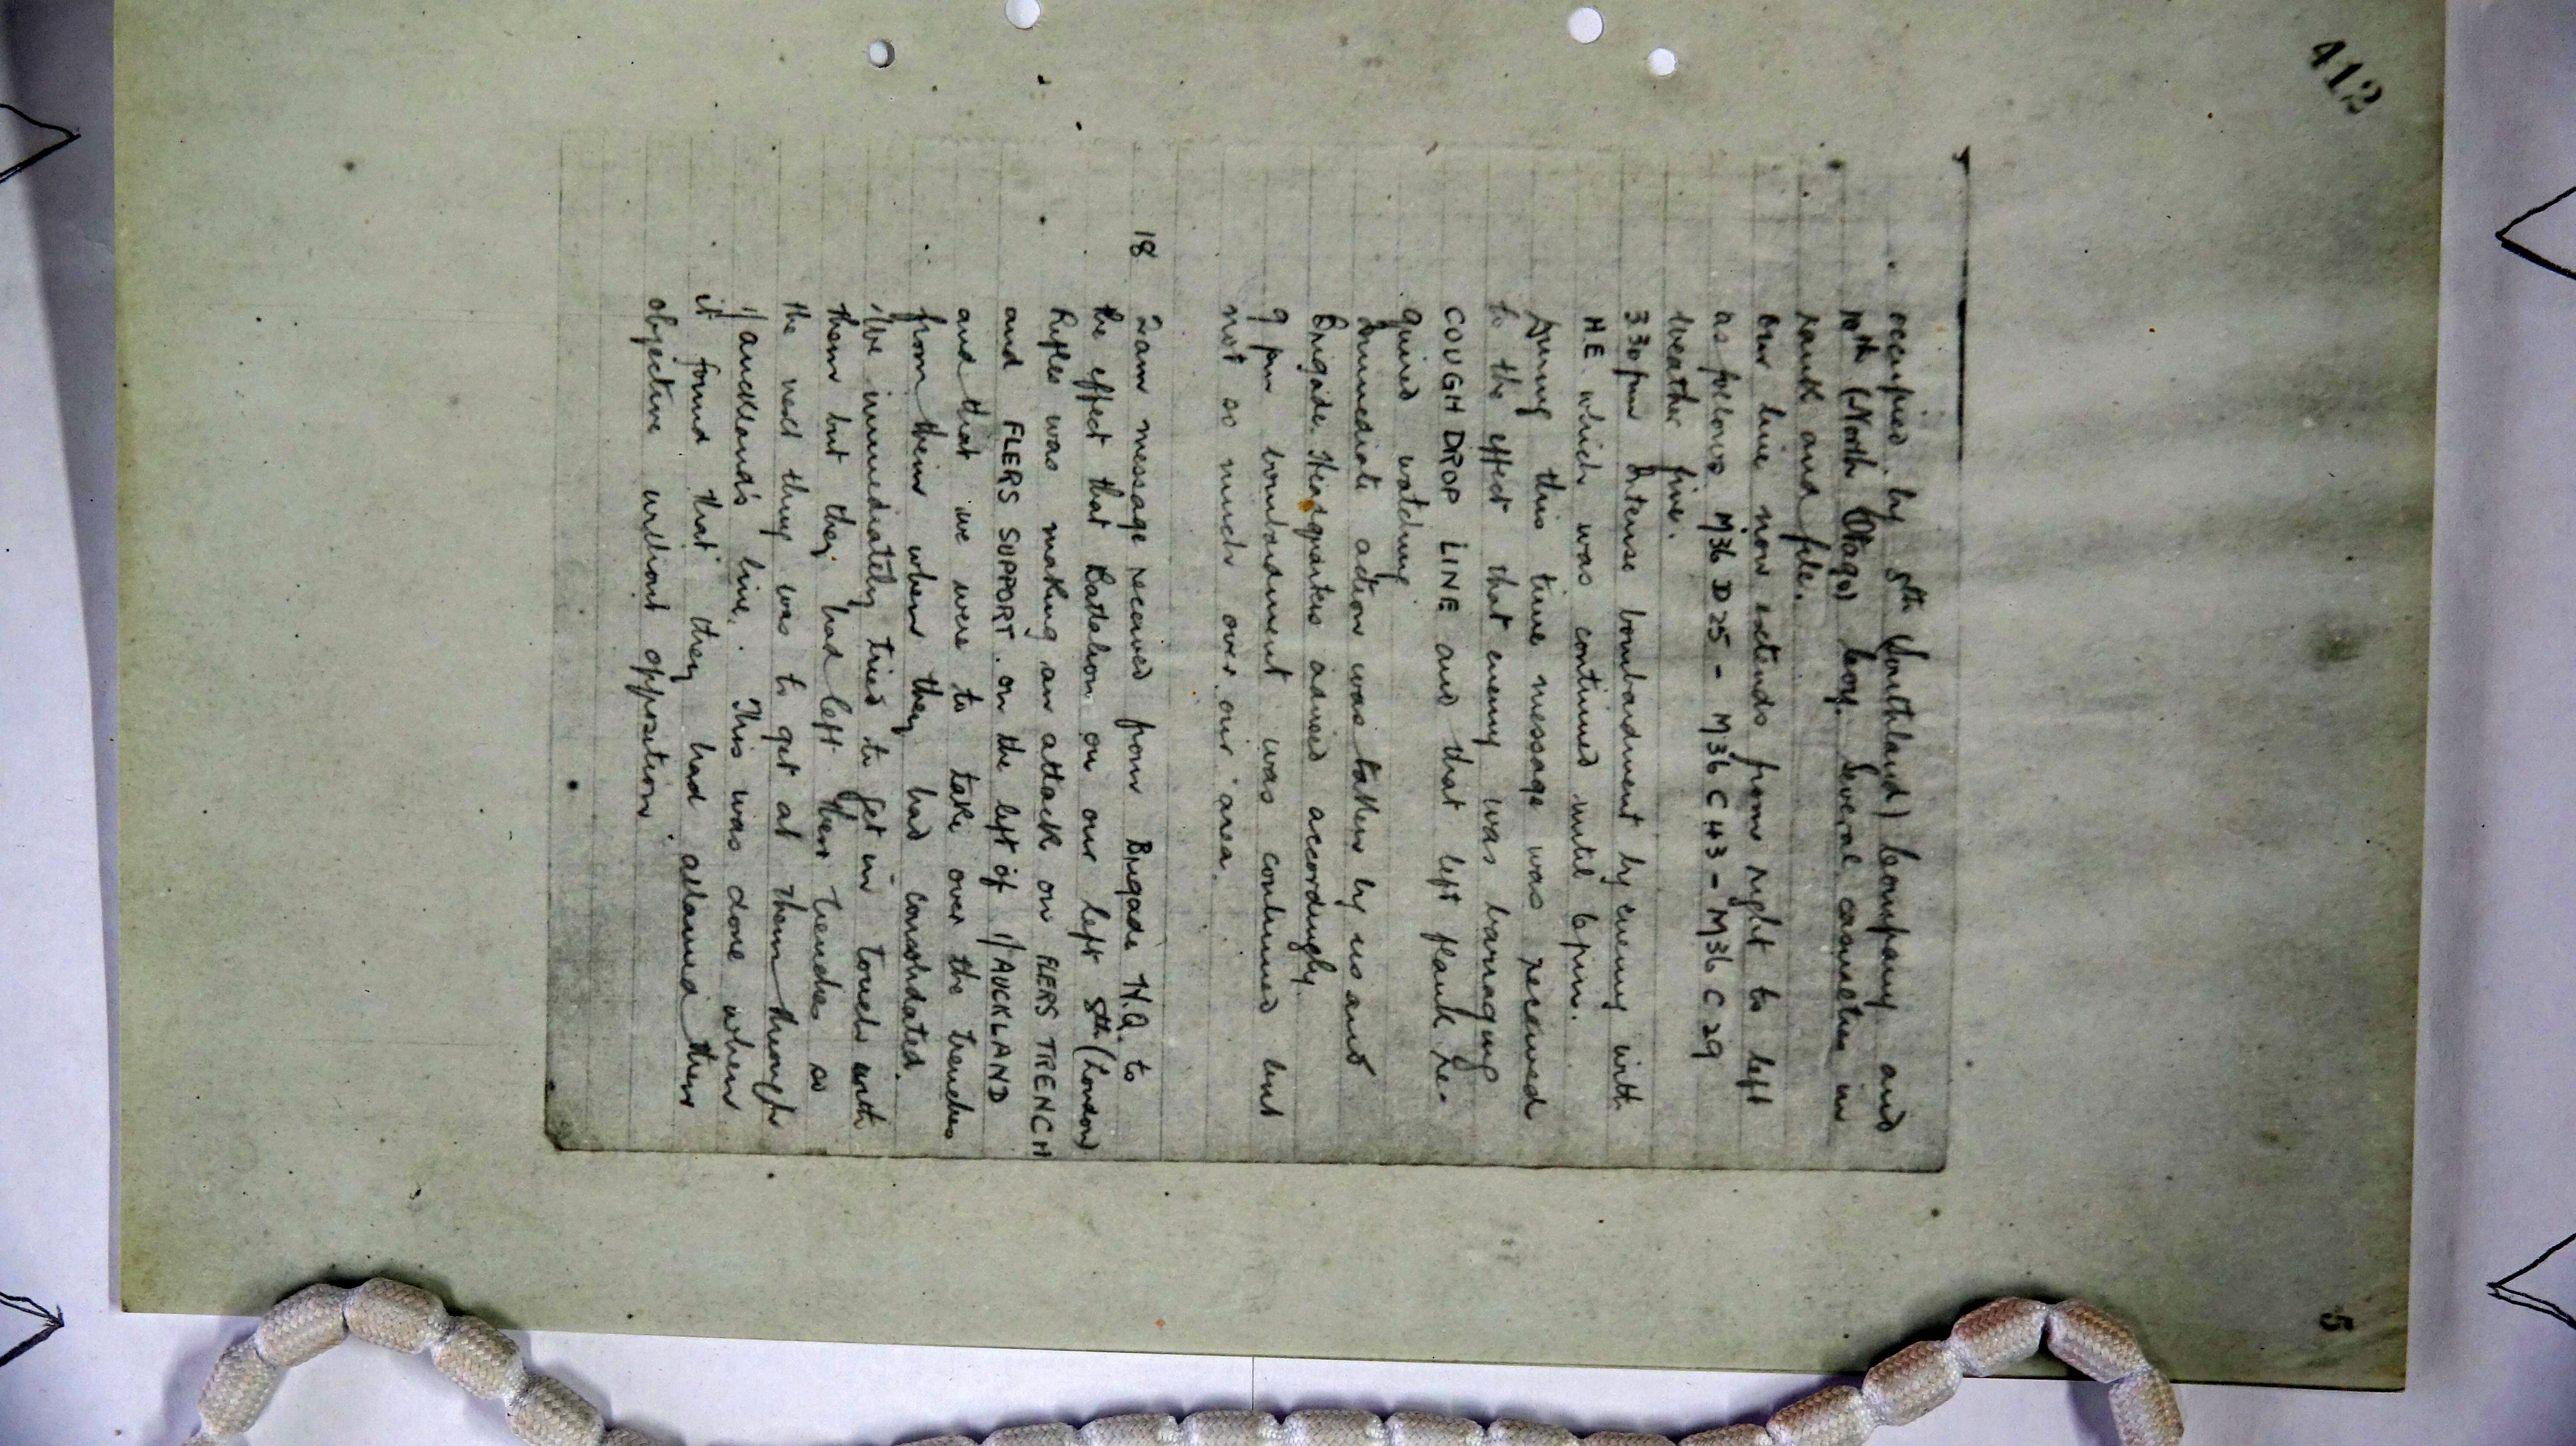 412
5
occupied by 8th (Southland) Company and
10th (North Otago) Coy. Several casualties in
rank and file.
Our line now extends from right to left
as follows M36 D 25 - M36 C 43 - M36 C 29
Weather fine.
3 30 pm Intense bombardment by enemy with
H.E. which was continued until 6 pm.
During this time message was received
to the effect that enemy was barraging
COUGH DROP LINE and that left flank re-
quired watching
Immediate action was taken by us and
Brigade Headquarters advised accordingly.
9 pm bombardment was continued but
not so much over our area.
18 2 am message received from Brigade H.Q. to
the effect that Battalion on our left 8th (London)
Rifles was making an attack on FLERS TRENCH
and FLERS SUPPORT on the left of 1/AUCKLAND
and that we were to take over the trenches
from them when they had consolidated.
We immediately tried to get in touch with
them but they had left their trenches so
the next thing was to get at them through
1/Auckland's line. This was done when
it found that they had attained their
objective without opposition.